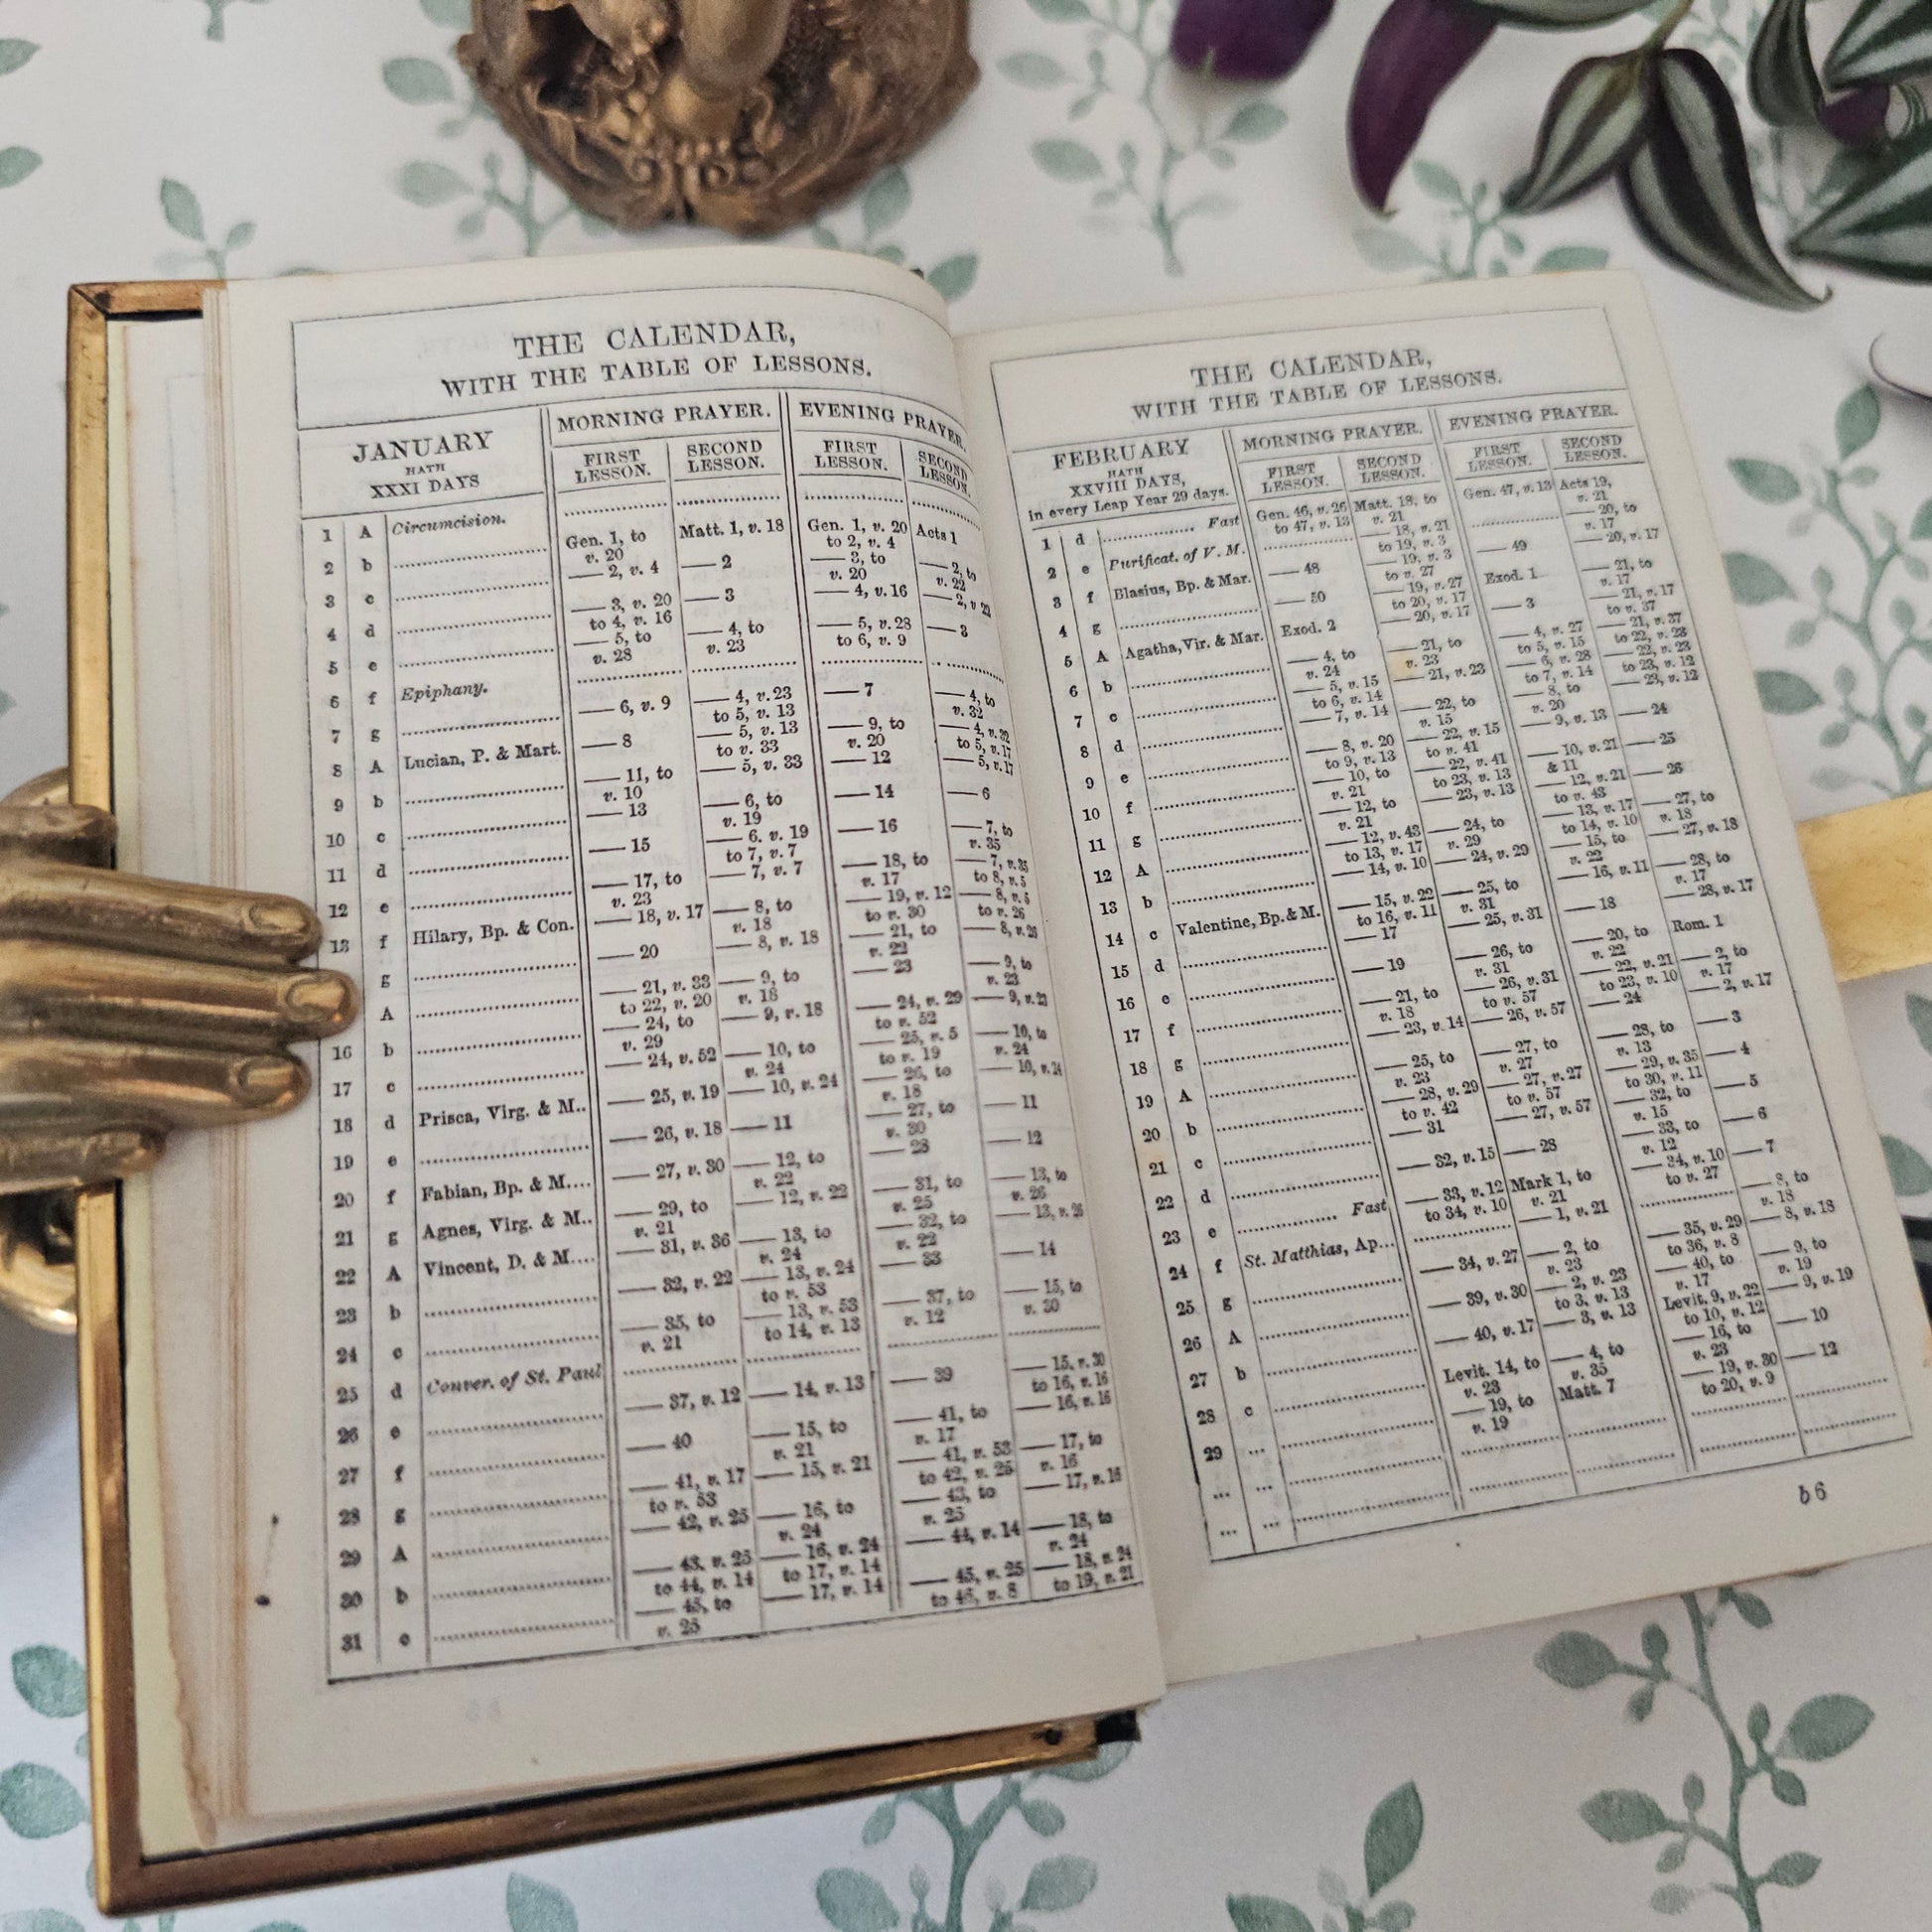 THE CALENDAR,
WITH THE TABLE OF LESSONS.
JANUARY HATH XXXI DAYS MORNING PRAYER. EVENING PRAYER.
FIRST LESSON. SECOND LESSON. FIRST LESSON. SECOND LESSON.
1 A Circumcision.
2 b Gen. 1, to v. 20 Matt. 1, v. 18 Gen. 1, v. 20 to 2, v. 4 Acts 1
3 c — 2, v. 4 — 2 — 3, to v. 20 — 2, to v. 22
4 d — 3, v. 20 to 4, v. 16 — 3 — 4, v. 16 — 2, v. 22
5 e — 5, to v. 28 — 4, to v. 23 — 5, v. 28 to 6, v. 9 — 3
6 f Epiphany.
7 g — 6, v. 9 — 4, v. 23 to 5, v. 13 — 7 — 4, to v. 32
8 A Lucian, P. & Mart. — 8 — 5, v. 13 to v. 33 — 9, to v. 20 — 4, v. 32 to 5, v. 17
9 b — 11, to v. 10 — 5, v. 33 — 12 — 5, v. 17
10 c — 13 — 6, to v. 19 — 14 — 6
11 d — 15 — 6. v. 19 to 7, v. 7 — 16 — 7, to v. 35
12 e — 17, to v. 23 — 7, v. 7 — 18, to v. 17 — 7, v. 35 to 8, v. 5
13 f Hilary, Bp. & Con. — 18, v. 17 — 8, to v. 18 — 19, v. 12 to v. 30 — 8, v. 5 to v. 26
g — 20 — 8, v. 18 — 21, to v. 22 — 8, v. 26
A — 21, v. 33 to 22, v. 20 — 9, to v. 18 — 23 — 9, to v. 23
16 b — 24, to v. 29 — 9, v. 18 — 24, v. 29 to v. 52 — 9, v. 23
17 c — 24, v. 52 — 10, to v. 24 — 25, v. 5 to v. 19 — 10, to v. 24
18 d Prisca, Virg. & M.. — 25, v. 19 — 10, v. 24 — 26, to v. 18 — 10, v. 24
19 e — 26, v. 18 — 11 — 27, to v. 30 — 11
20 f Fabian, Bp. & M.... — 27, v. 30 — 12, to v. 22 — 28 — 12
21 g Agnes, Virg. & M.. — 29, to v. 21 — 12, v. 22 — 31, to v. 25 — 13, to v. 26
22 A Vincent, D. & M.... — 31, v. 36 — 13, to v. 24 — 32, to v. 22 — 13, v. 26
23 b — 32, v. 22 — 13, v. 24 to v. 53 — 33 — 14
24 c — 35, to v. 21 — 13, v. 53 to 14, v. 13 — 37, to v. 12 — 15, to v. 30
25 d Conver. of St. Paul
26 e — 37, v. 12 — 14, v. 13 — 39 — 15, v. 30 to 16, v. 16
27 f — 40 — 15, to v. 21 — 41, to v. 17 — 16, v. 16
28 g — 41, v. 17 to v. 53 — 15, v. 21 — 41, v. 53 to 42, v. 25 — 17, to v. 16
29 A — 42, v. 25 — 16, to v. 24 — 43, to v. 25 — 17, v. 16
30 b — 43, v. 25 to 44, v. 14 — 16, v. 24 to 17, v. 14 — 44, v. 14 — 18, to v. 24
31 c — 45, to v. 25 — 17, v. 14 — 45, v. 25 to 46, v. 8 — 18, v. 24 to 19, v. 21
THE CALENDAR,
WITH THE TABLE OF LESSONS.
FEBRUARY HATH XXVIII DAYS, in every Leap Year 29 days. MORNING PRAYER. EVENING PRAYER.
FIRST LESSON. SECOND LESSON. FIRST LESSON. SECOND LESSON.
1 d Fast Gen. 46, v. 26 to 47, v. 13 Matt. 18, to v. 21 Gen. 47, v. 13 Acts 19, v. 21
2 e Purificat. of V. M. — 18, v. 21 to 19, v. 3 — 20, to v. 17
3 f Blasius, Bp. & Mar. — 48 — 19, v. 3 to v. 27 — 49 — 20, v. 17
4 g — 50 — 19, v. 27 to 20, v. 17 Exod. 1 — 21, to v. 17
5 A Agatha, Vir. & Mar. Exod. 2 — 20, v. 17 — 3 — 21, v. 17 to v. 37
6 b — 4, to v. 24 — 21, to v. 23 — 4, v. 27 to 5, v. 15 — 21, v. 37 to 22, v. 23
7 c — 5, v. 15 to 6, v. 14 — 21, v. 23 — 6, v. 28 to 7, v. 14 — 22, v. 23 to 23, v. 12
8 d — 7, v. 14 — 22, to v. 15 — 8, to v. 20 — 23, v. 12
9 e — 8, v. 20 to 9, v. 13 — 22, v. 15 to v. 41 — 9, v. 13 — 24
10 f — 10, to v. 21 — 22, v. 41 to 23, v. 13 — 10, v. 21 & 11 — 25
11 g — 12, to v. 21 — 23, v. 13 — 12, v. 21 to v. 43 — 26
12 A — 12, v. 43 to 13, v. 17 — 24, to v. 29 — 13, v. 17 to 14, v. 10 — 27, to v. 18
13 b — 14, v. 10 — 24, v. 29 — 15, to v. 22 — 27, v. 18
14 c Valentine, Bp. & M. — 15, v. 22 to 16, v. 11 — 25, to v. 31 — 16, v. 11 — 28, to v. 17
15 d — 17 — 25, v. 31 — 18 — 28, v. 17
16 e — 19 — 26, to v. 31 — 20, to v. 22 Rom. 1
17 f — 21, to v. 18 — 26, v. 31 to v. 57 — 22, v. 21 to 23, v. 10 — 2, to v. 17
18 g — 23, v. 14 — 26, v. 57 — 24 — 2, v. 17
19 A — 25, to v. 23 — 27, to v. 27 — 28, to v. 13 — 3
20 b — 28, v. 29 to v. 42 — 27, v. 27 to v. 57 — 29, v. 35 to 30, v. 11 — 4
21 c — 31 — 27, v. 57 — 32, to v. 15 — 5
22 d — 32, v. 15 — 28 — 33, to v. 12 — 6
23 e Fast — 33, v. 12 to 34, v. 10 Mark 1, to v. 21 — 34, v. 10 to v. 27 — 7
24 f St. Matthias, Ap... — 1, v. 21 — 8, to v. 18
25 g — 34, v. 27 — 2, to v. 23 — 35, v. 29 to 36, v. 8 — 8, v. 18
26 A — 39, v. 30 — 2, v. 23 to 3, v. 13 — 40, to v. 17 — 9, to v. 19
27 b — 40, v. 17 — 3, v. 13 Levit. 9, v. 22 to 10, v. 12 — 9, v. 19
28 c Levit. 14, to v. 23 — 4, to v. 35 — 16, to v. 23 — 10
29 ... — 19, to v. 19 Matt. 7 — 19, v. 30 to 20, v. 9 — 12
b 6